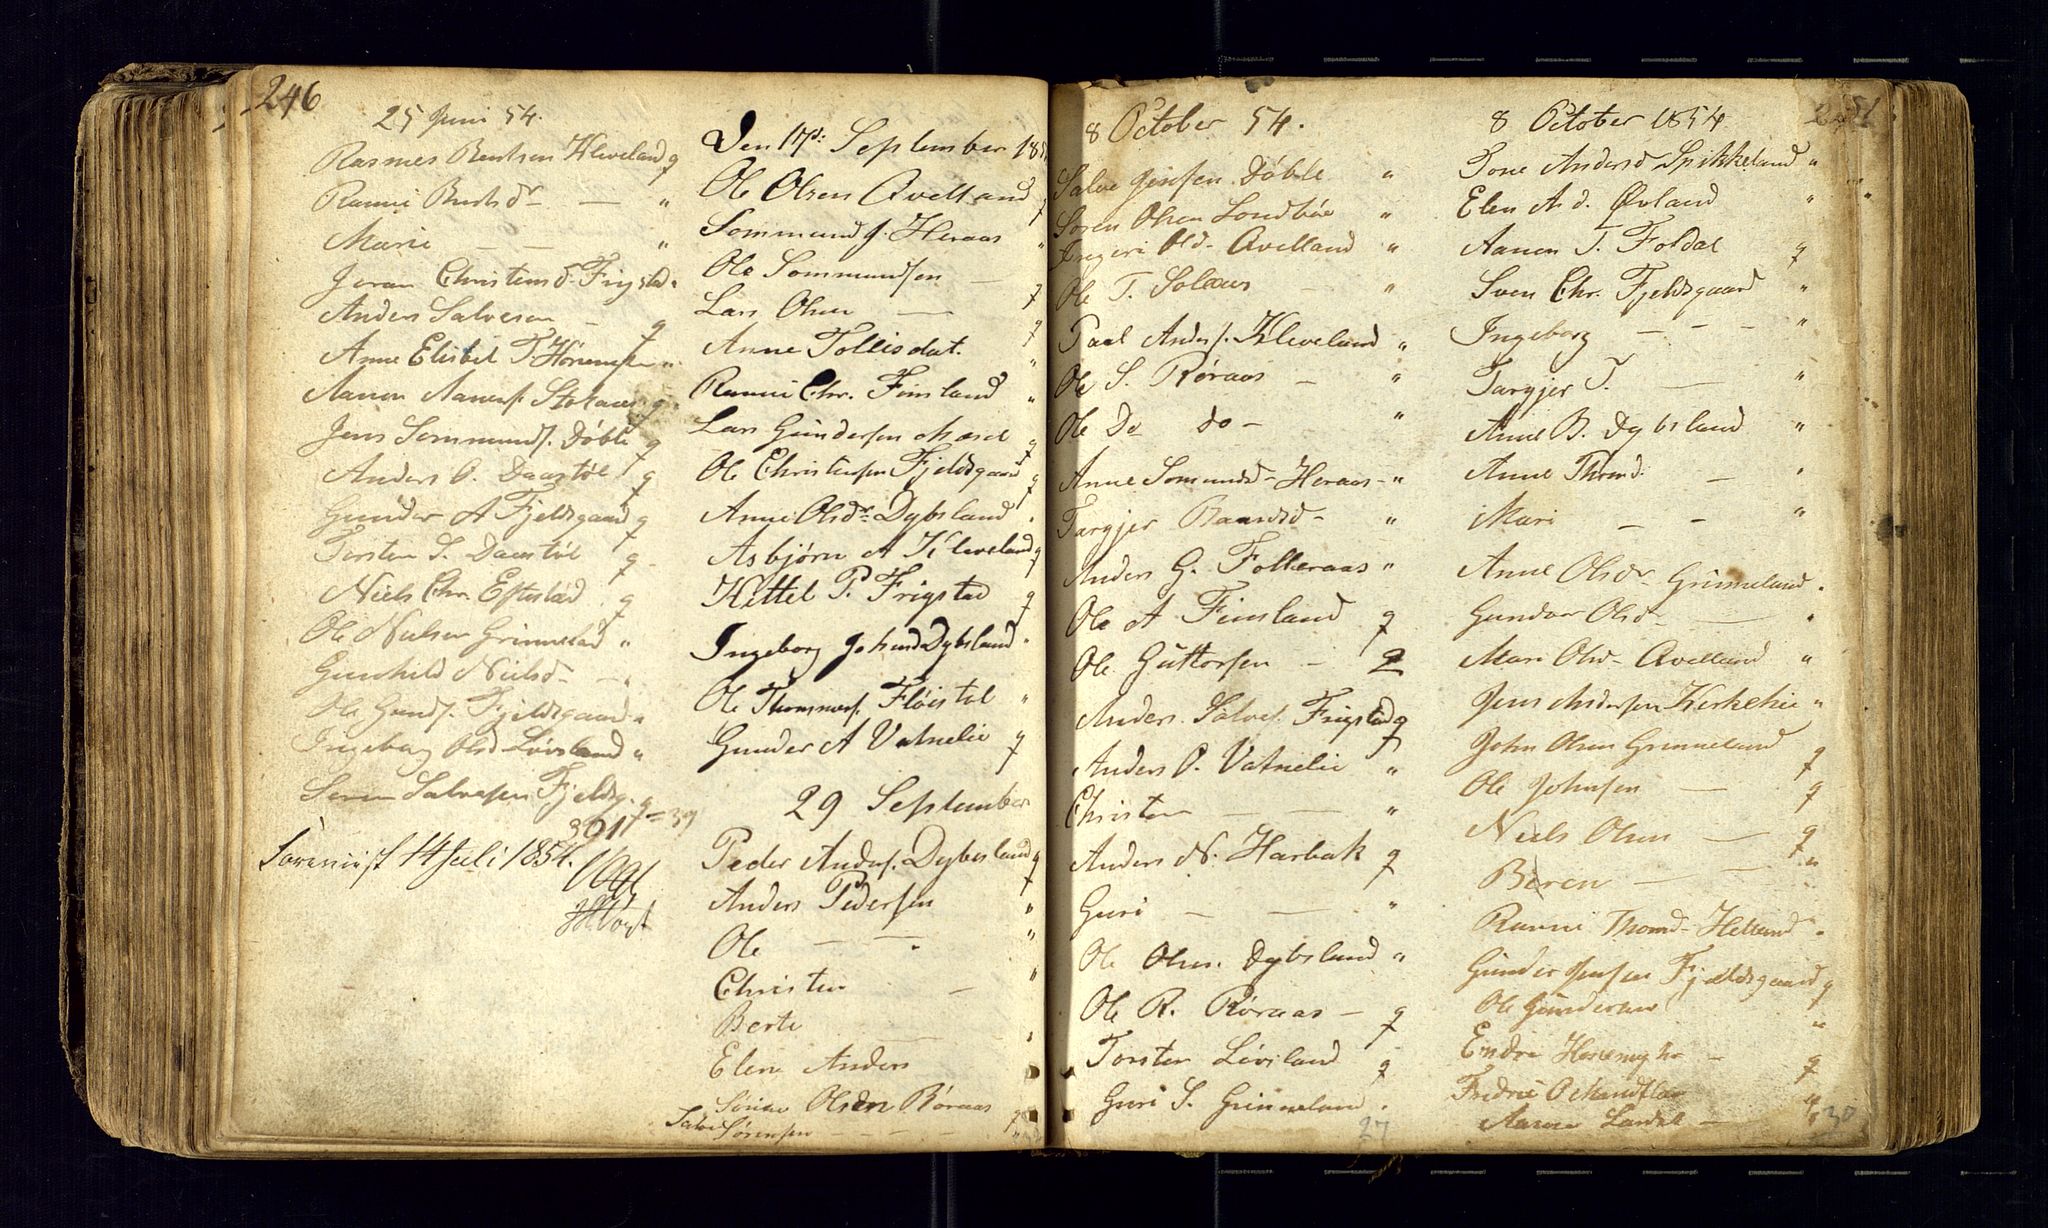 246
25 Juni 54.
Rasmus Bentsen Kleveland g
Ranni Bentsd — "
Marie — — "
Joran Christensd. Frigstad "
Anders Salvesen — g
Anne Elisbet T.
Aanon Aanens. Stokaas g
Jens Sommunds. Døble g
Anders O. Daastøl g
Gunder A Fjeldsgaard g
Torsten S. Daastøl g
Niels Chr. Eftestad g
Ole Nielsen Grimmelad "
Gunhild Nielsd — — "
Ole Gunds. Fjeldsgaard "
Ingeborg Olsd Løvsland "
Søren Salvesen Fjeldsg. g
14 Juli 1854.
Den 17de September 18
Ole Olsen Avelland g
Sommund J. Heraas "
Ole Sommundsen — g
Lars Olsen — g
Anne Tollisdat. "
Ranni Chr. Finsland "
Lars Gundersen g
Ole Christensen Fjeldsgaard g
Anne Olsdr Dybsland "
Asbjørn A Kleveland g
Kittel P. Frigstad g
Ingeborg Johnsd Dybsland "
Ole Thommes. Fløistøl "
Gunder A Vatnelie g
29 September
Peder Anders. Dybesland g
Anders Pedersen "
Ole — — "
Christen — "
Berte
Elen Anders
Olsen Røraas g
Salve Sørensen — — — "
8 October 54.
Salve Jensen Døble "
Søren Olsen Londbøe "
Ingeri Old- Avelland "
Ole T. Solaas — "
Paal Anders. Kleveland "
Ole S. Røraas — "
Ole Do do — "
Anne Somundsd- Heraas — "
Targjer Baardsd — "
Anders G. Folleraas "
Ole A Finsland g
Ole Guttorsen — 2
Anders Salves. Frigstad g
Anders P. Vatnelie "
Christen — — "
Anders N. Harbak g
Guri — — "
Ole Olsen. Dybsland "
Ole R. Røraas — g
Torsten Løvsland g
Guri S. Grimmeland "
27
251
8 October 1854
Tone Andersd Spikkeland "
Elen A d. Øvland "
Aanon T. Foldal g
Sven Chr. Fjeldsgaard "
Ingeborg — — — "
Targjer T. — "
Anne B. Dybsland "
Anne Thomd. — "
Mari — — "
Anne Olsdr — Grimmeland "
Gundor Olsd — — "
Mari Olsd — Avelland "
Jens Andersen Kirkelie "
John Olsen Grimmeland g
Ole Johnsen — g
Niels Olsen — g
Beren — — "
Ranni Thomd- Helland "
Gunder Jensen Fjældsgaard g
Ole Gundersen "
Endre — g
Fredric
Aanon — "
30